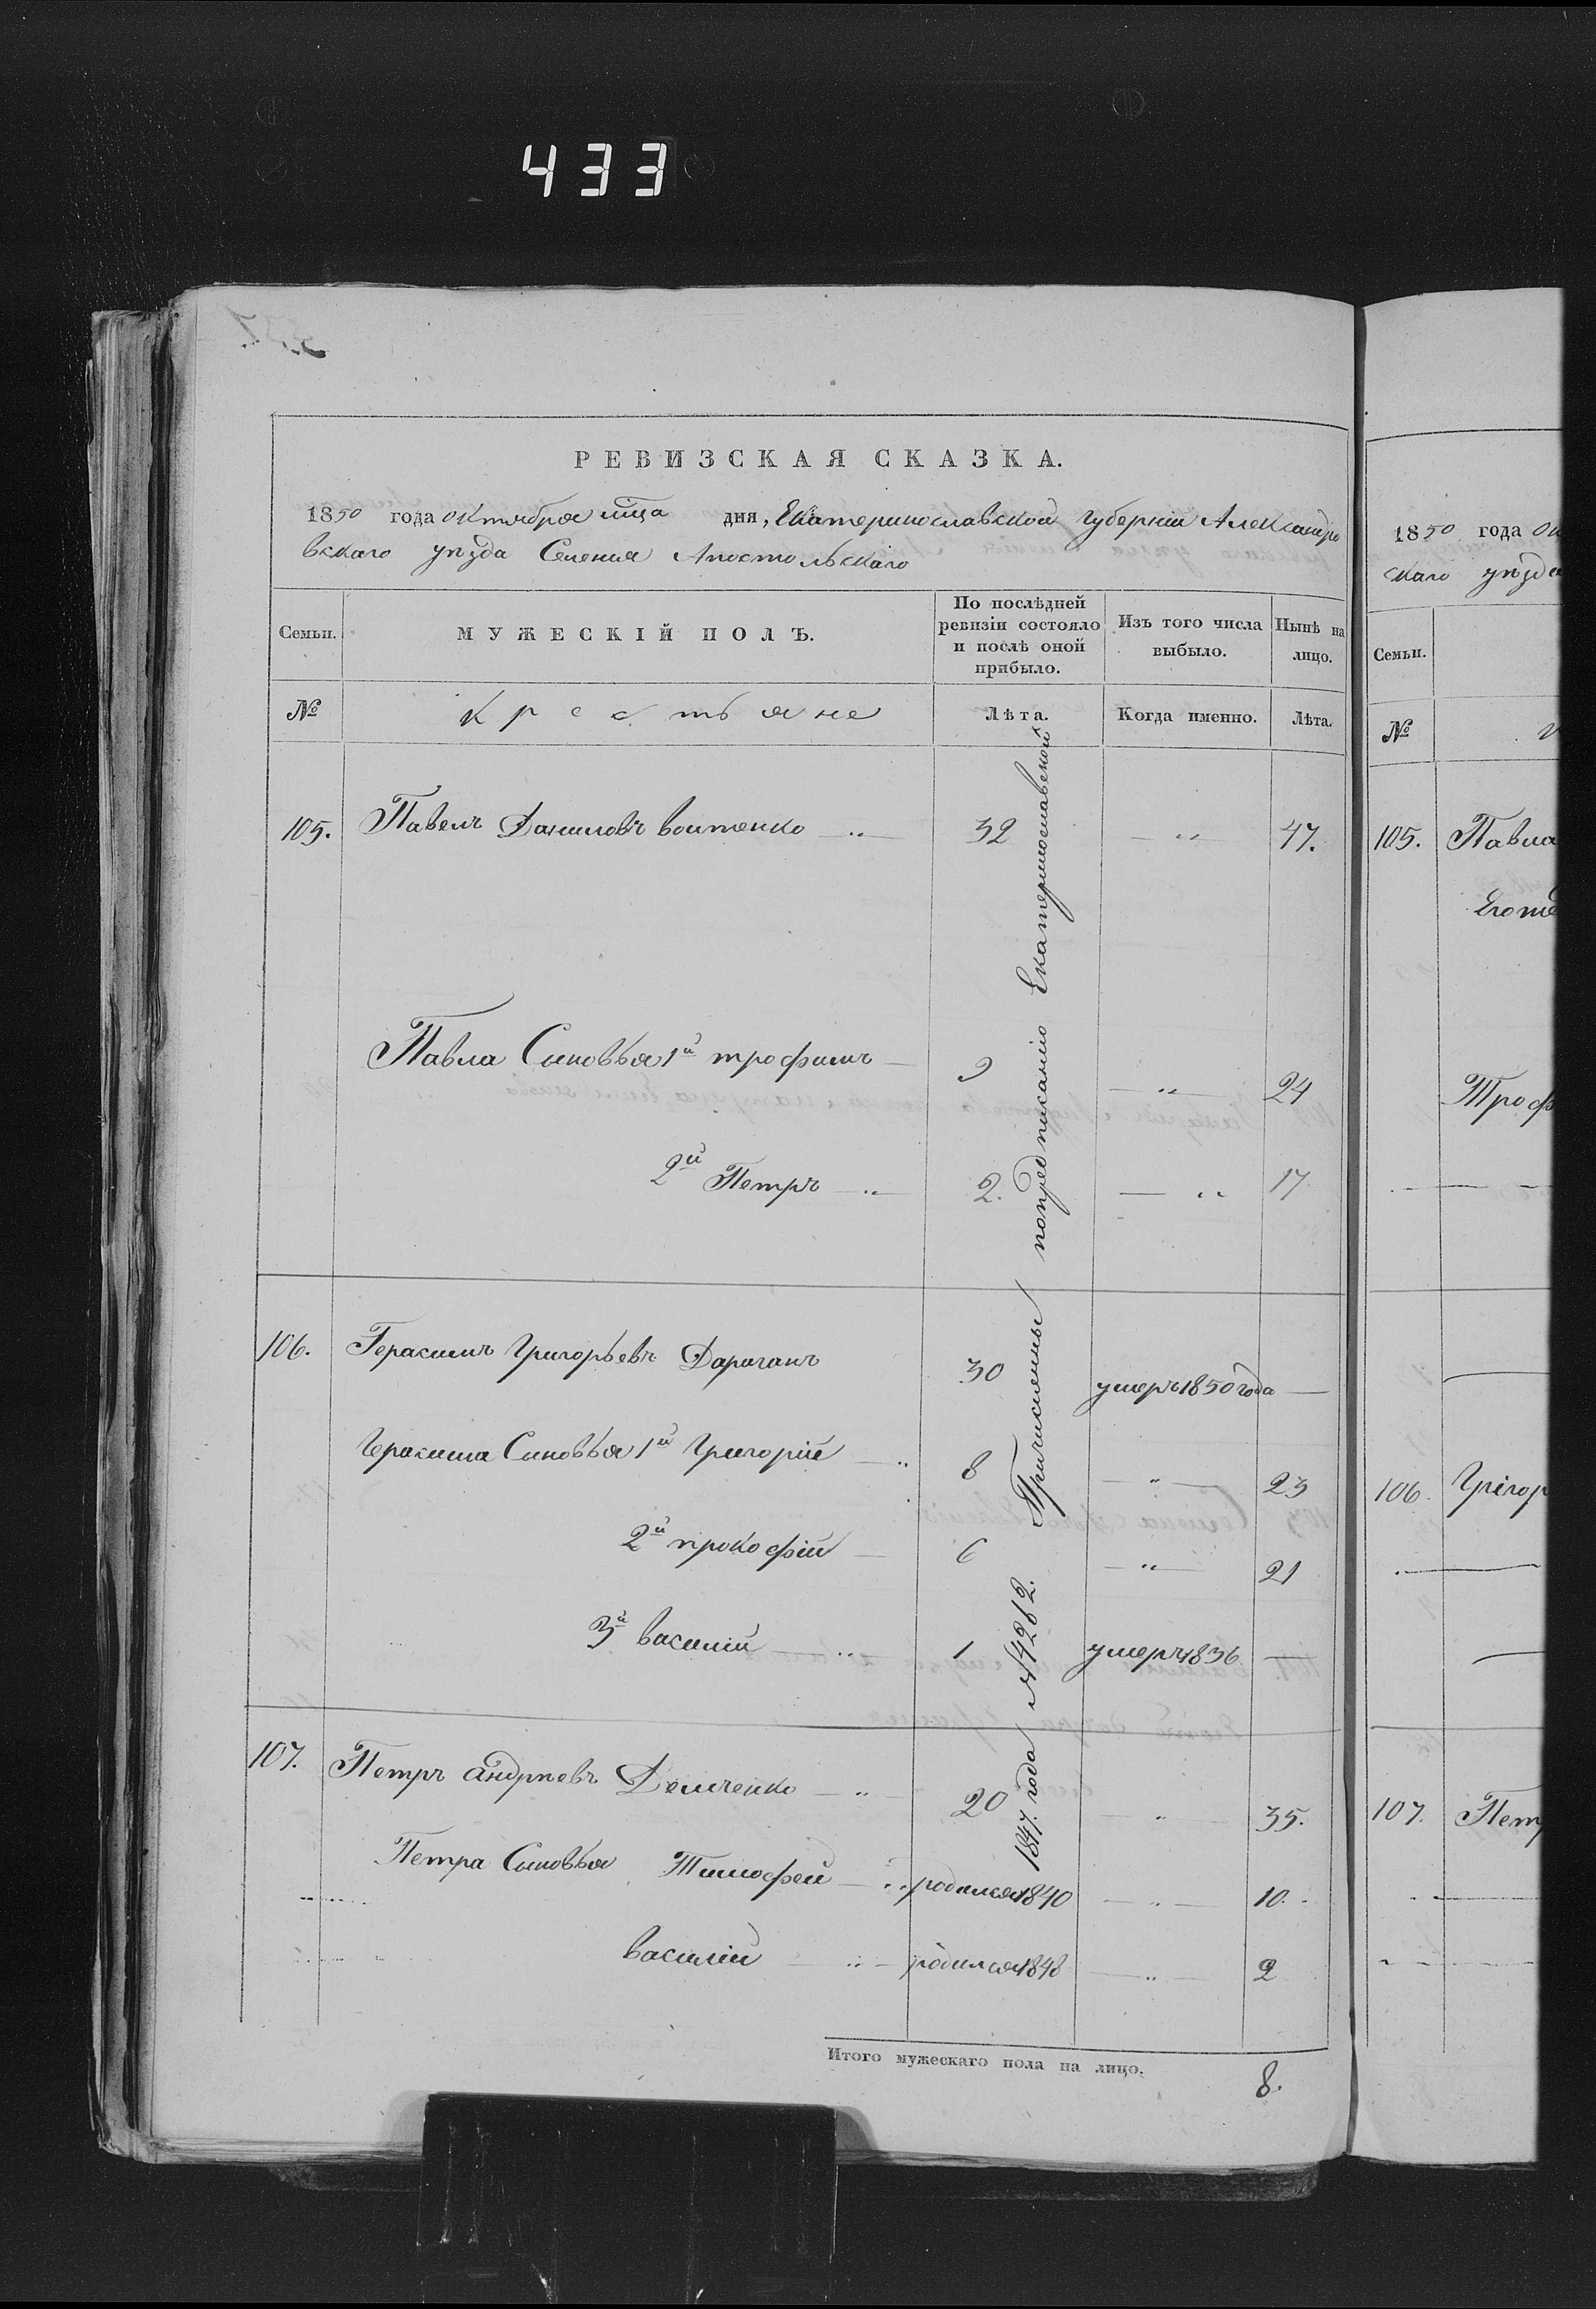 433
РЕВИЗСКАЯ СКАЗКА.
1850 года октября мца дня, Екатеринославской Губернии Александро
вскаго уѣзда Селения Апостольскаго
Семьи.
МУЖЕСКІЙ ПОЛЪ.
По послѣдней ревизіи состояло и послѣ оной прибыло.
Изъ того числа выбыло.
Нынѣ на лицо.
№
Крестьяне
Лѣта.
Когда именно.
Лѣта.
105. Павелъ Даниловъ воитенко 32 47.
Павла Синовья 1й трофимъ 9 24
2й Петръ 2. 17
106. Герасимъ Григорьевъ Дараганъ 30 умеръ 1850 года
Герасима Синовья 1й Григорій 8 23
2й прокофій 6 21
3й василий 1 умеръ 1836
107. Петръ андрѣевъ Демченко 20 35.
Петра Синовья Тимофей родился 1840 10.
василий родился 1848 2
Причисленные попредписанію Екатеринославской
1847 года №4262.
Итого мужескаго пола на лицо. 8.
1850 года ок
скаго уѣзда
Семьи.
№
105. Павла
Его
Троф
106. Грігор
107. Петр